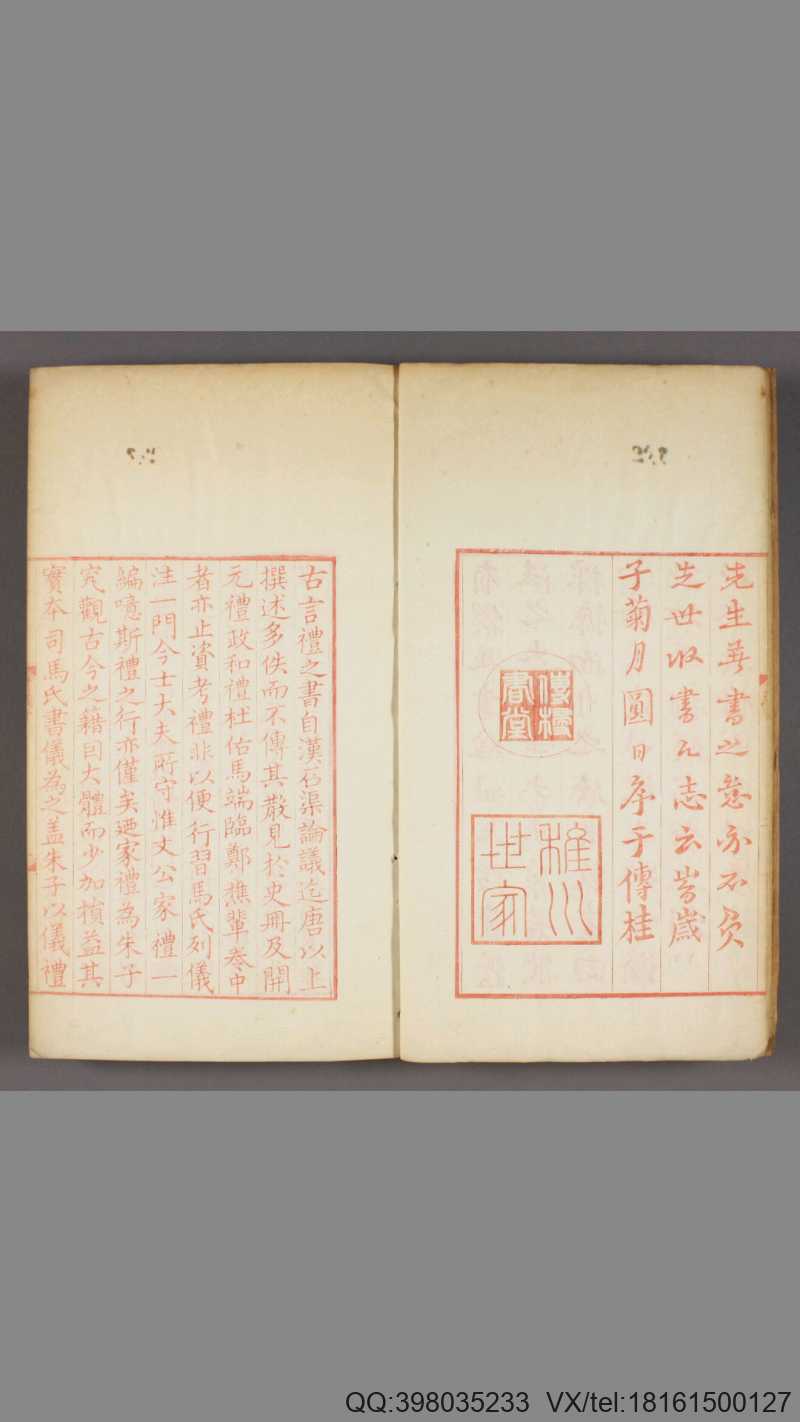 先生著書之意亦不負
先世收書之志云昔歲
子菊月圓日序于傳桂
傳桂
書堂
稚川
世家
古言禮之書自漢石渠論議迄唐以上
撰述多佚而不傳其散見於史冊及開
元禮政和禮杜佑馬端臨鄭樵輩卷中
者亦止資考禮非以便行習馬氏列儀
注一門今士大夫所守惟文公家禮一
編噫斯禮之行亦僅矣廼家禮為朱子
究觀古今之藉因大體而少加損益其
實本司馬氏書儀為之盖朱子以儀禮
QQ:398035233 VX/tel:18161500127